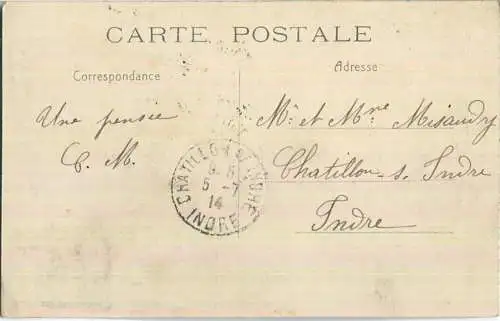 CARTE POSTALE
Correspondance
Adresse
Une pensée
C. M.
Mr. et Mme Misandry
Chatillon s. Indre
Indre
CHATILLON S INDRE
5 -7
14
INDRE